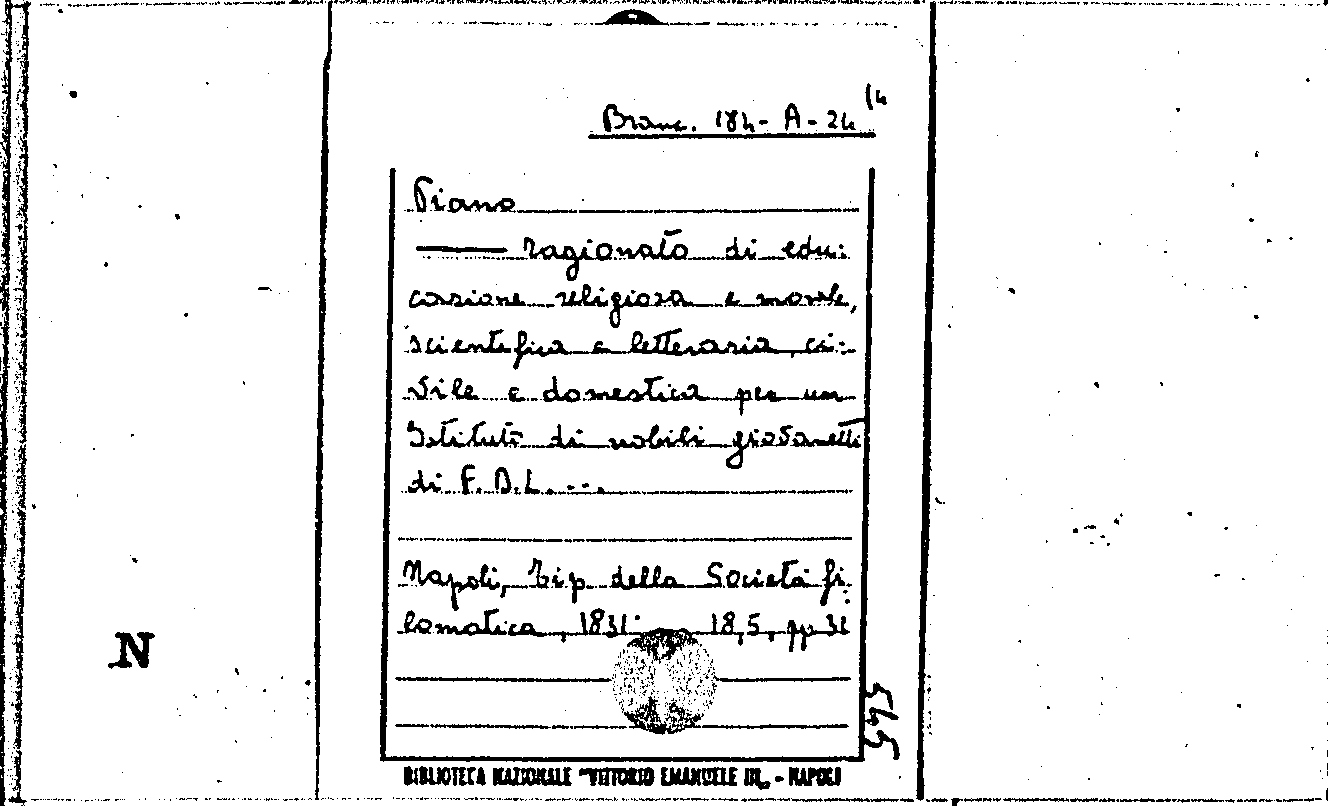 Branc. 184-A-24 (4
Piano
——— ragionato di edu:
cazione religiosa e morale,
scientifica e letteraria, ci:
vile e domestica per un
Istituto di nobili giovanetti
di F. D. L. ...
Napoli, Tip della Società fi:
lomatica, 1831 18,5, pp 31
N
545
BIBLIOTECA NAZIONALE "VITTORIO EMANUELE III„ - NAPOLI